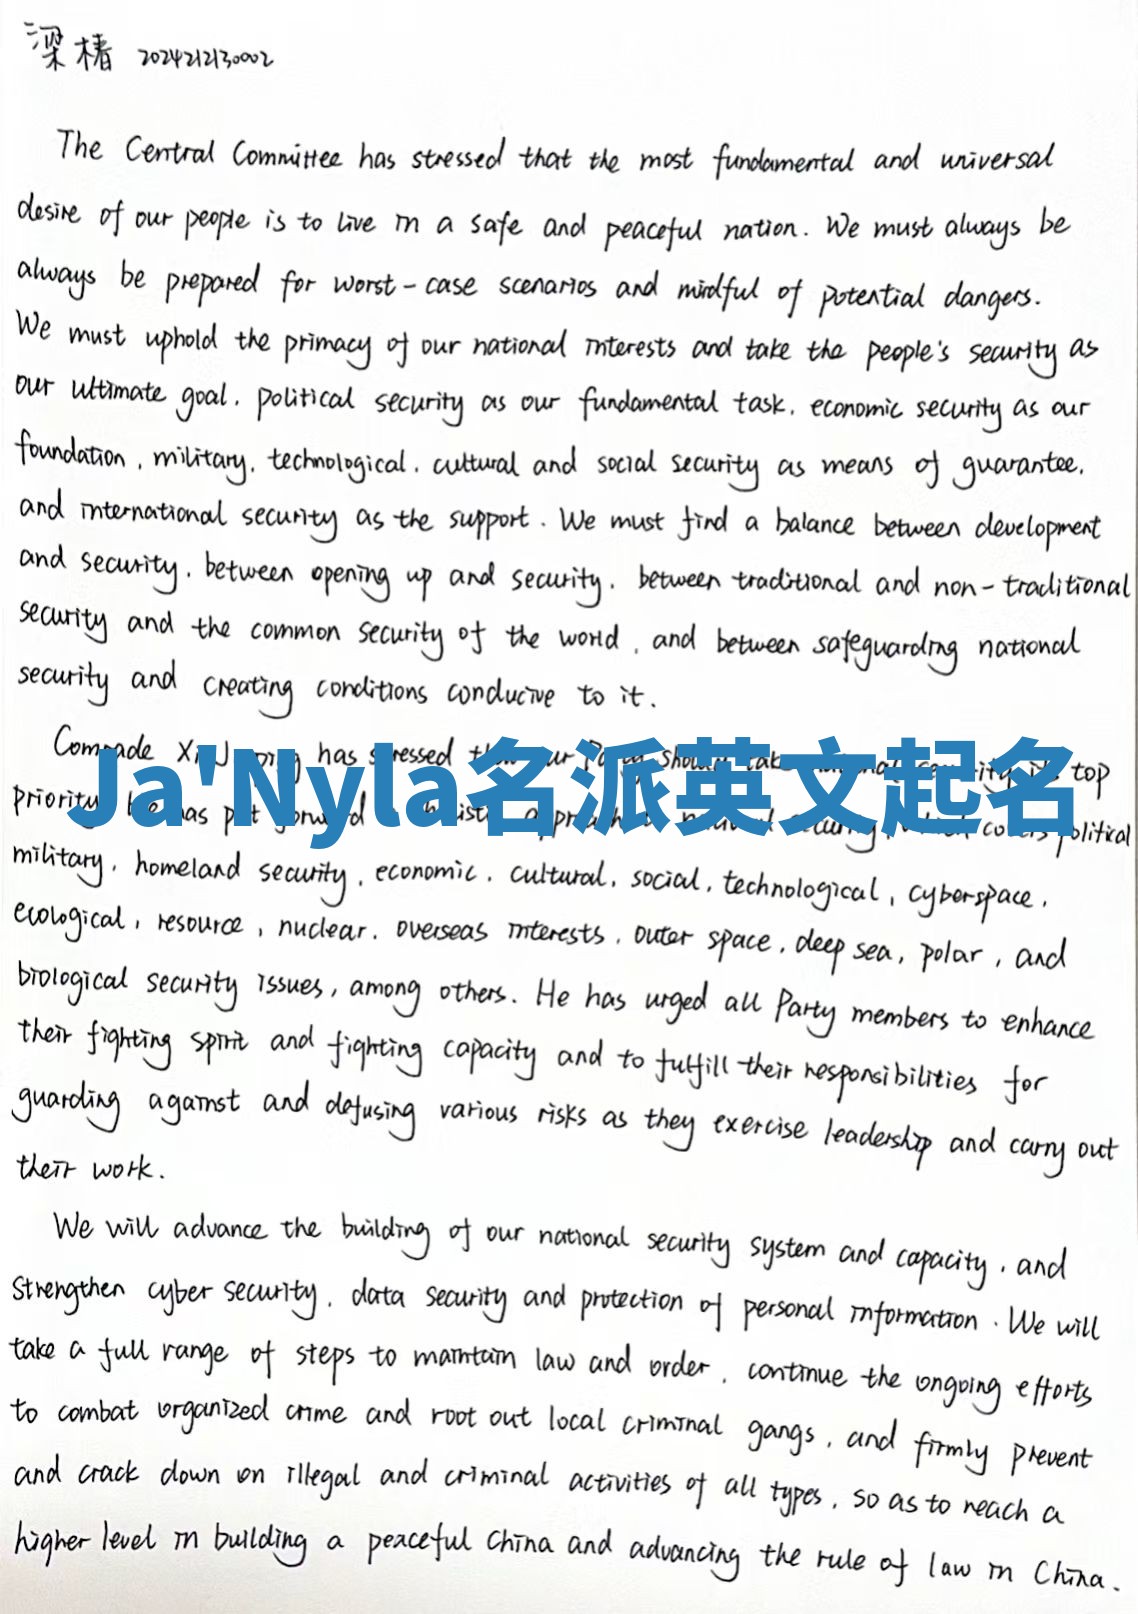 梁椿 2024212130002
The Central Committee has stressed that the most fundamental and universal
desire of our people is to live in a safe and peaceful nation. We must always be
always be prepared for worst-case scenarios and mindful of potential dangers.
We must uphold the primacy of our national interests and take the people's security as
our ultimate goal, political security as our fundamental task, economic security as our
foundation, military, technological, cultural and social security as means of guarantee,
and international security as the support. We must find a balance between development
and security, between opening up and security, between traditional and non-traditional
security and the common security of the world, and between safeguarding national
security and creating conditions conducive to it.
Comrade has stressed top
Ja'Nyla名派英文起名
priority has put political
military, homeland security, economic, cultural, social, technological, cyberspace,
ecological, resource, nuclear, overseas interests, outer space, deep sea, polar, and
biological security issues, among others. He has urged all Party members to enhance
their fighting spirit and fighting capacity and to fulfill their responsibilities for
guarding against and defusing various risks as they exercise leadership and carry out
their work.
We will advance the building of our national security system and capacity, and
strengthen cyber security, data security and protection of personal information. We will
take a full range of steps to maintain law and order, continue the ongoing efforts
to combat organized crime and root out local criminal gangs, and firmly prevent
and crack down on illegal and criminal activities of all types, so as to reach a
higher level in building a peaceful China and advancing the rule of law in China.